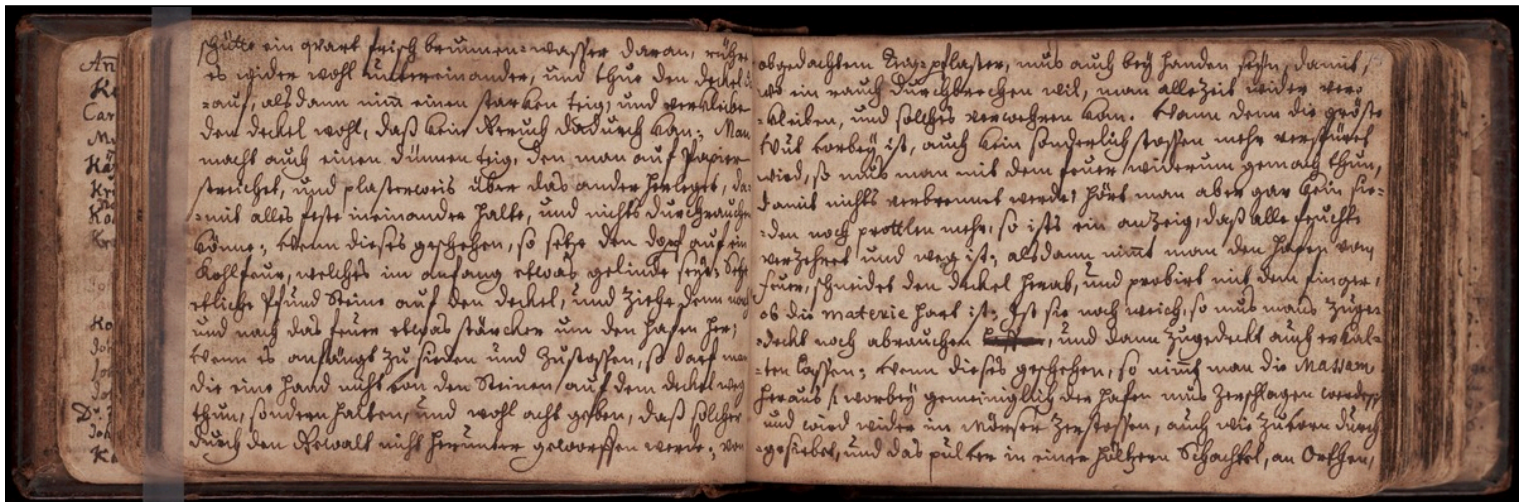 An
Ke
Car
Mu
Kä
Kr
Ko
Kre
Ko
Joh
Jo
Jo
Dr.
Joh
Ka
schütte ein quart frisch brunnen=wasser daran, rühre
es wider wohl untereinander, und thue den deckel
=auf, alsdann nim̅ einen starken teig, und verkleibe
den deckel wohl, daß kein Geruch dadurch kan; Man
macht auch einen dünnen teig, den man auf Papier
streichet, und plasterweis über das ander herleget, da=
=mit alles feste ineinander halte, und nichts durchrauchen
könne; Wenn dieses geschehen, so setze den topf auf ein
Kohlfeur, welches im anfang etwas gelinde seye; Setze
etliche Pfund Steine auf den deckel, und ziehe denn nach
und nach das feuer etwas stärcker um den hafen her;
Wenn es anfängt zu sieden und zustossen, so darf man
die eine hand nicht von den Steinen auf dem deckel weg
thun, sondern halten, und wohl acht geben, daß solcher
durch den Gewalt nicht herunter geworffen werde; von
obgedachtem plaster, mus auch bey handen seyn, damit,
wo ein rauch durchbrechen wil, man allezeit wider ver=
=kleiben, und solches verwehren kan. Wann denn die gröste
Wut vorbey ist, auch kein sonderlich stossen mehr verspüret
wird, so mus man mit dem feuer widerum gemach thun,
damit nichts verbrennet werde; hört man aber gar kein sie=
=den noch prottlen mehr, so ists ein anzeig, daß alle feuchte
verzehret und weg ist; alsdann nim̅t man den hafen vom
feuer, schneidet den deckel herab, und probirt mit dem finger,
ob die materie hart ist; Ist sie noch weich, so mus mans zuge=
=deckt noch abrauchen, und dann zugedeckt auch erkal=
=ten lassen; Wenn dieses geschehen, so nimt man die Massam
heraus /: worbey gemeiniglich der hafen mus zerschlagen werden :/
und wird wider im Mörser zerstossen, auch wie zuvorn durch
=gesiebet, und das pulver in einer höltzern Schachtel, an Orthen,